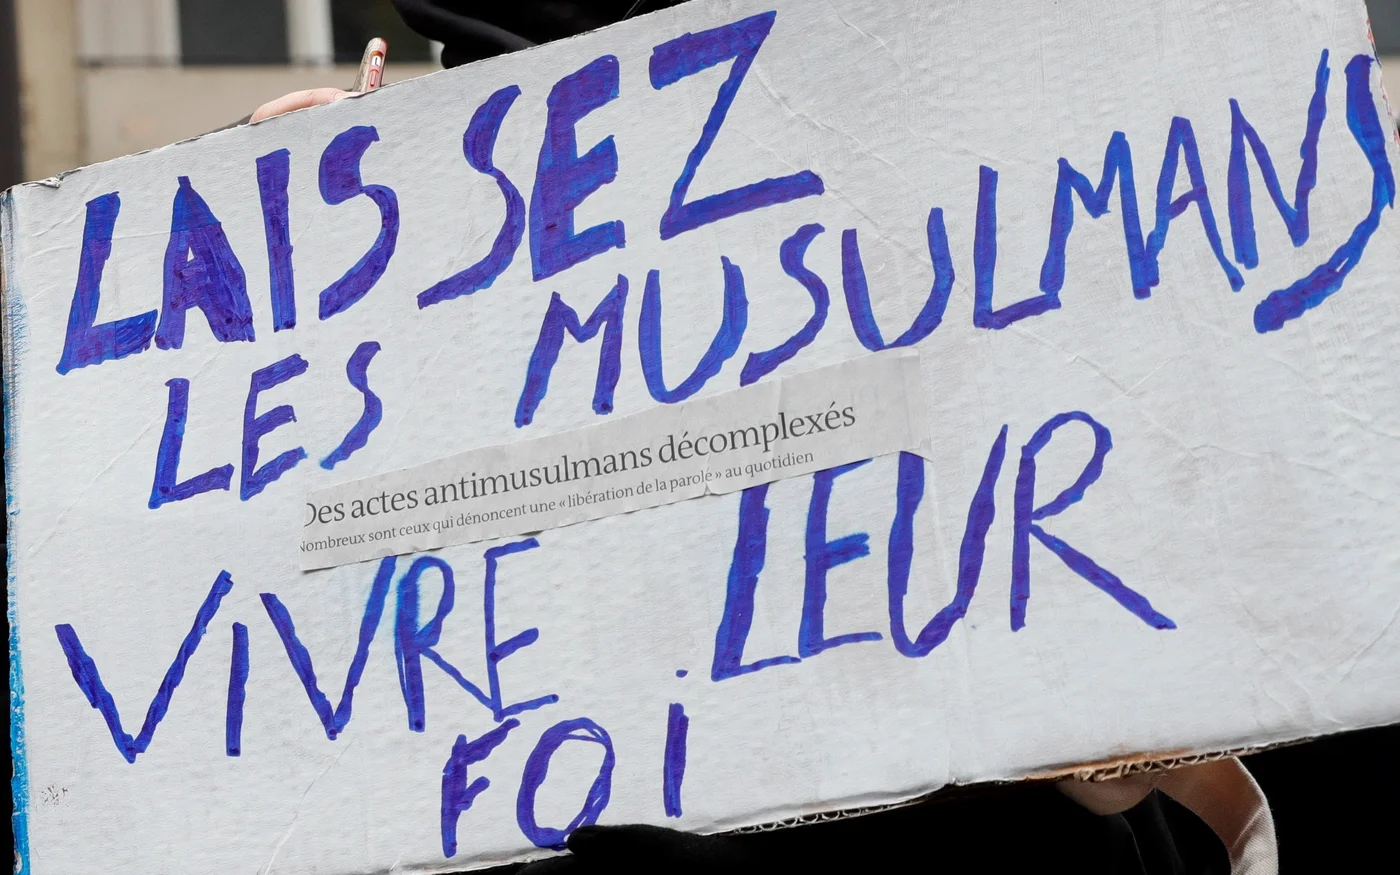 LAISSEZ
LES MUSULMANS
Des actes antimusulmans décomplexés
Nombreux sont ceux qui dénoncent une « libération de la parole » au quotidien
VIVRE LEUR
FOi